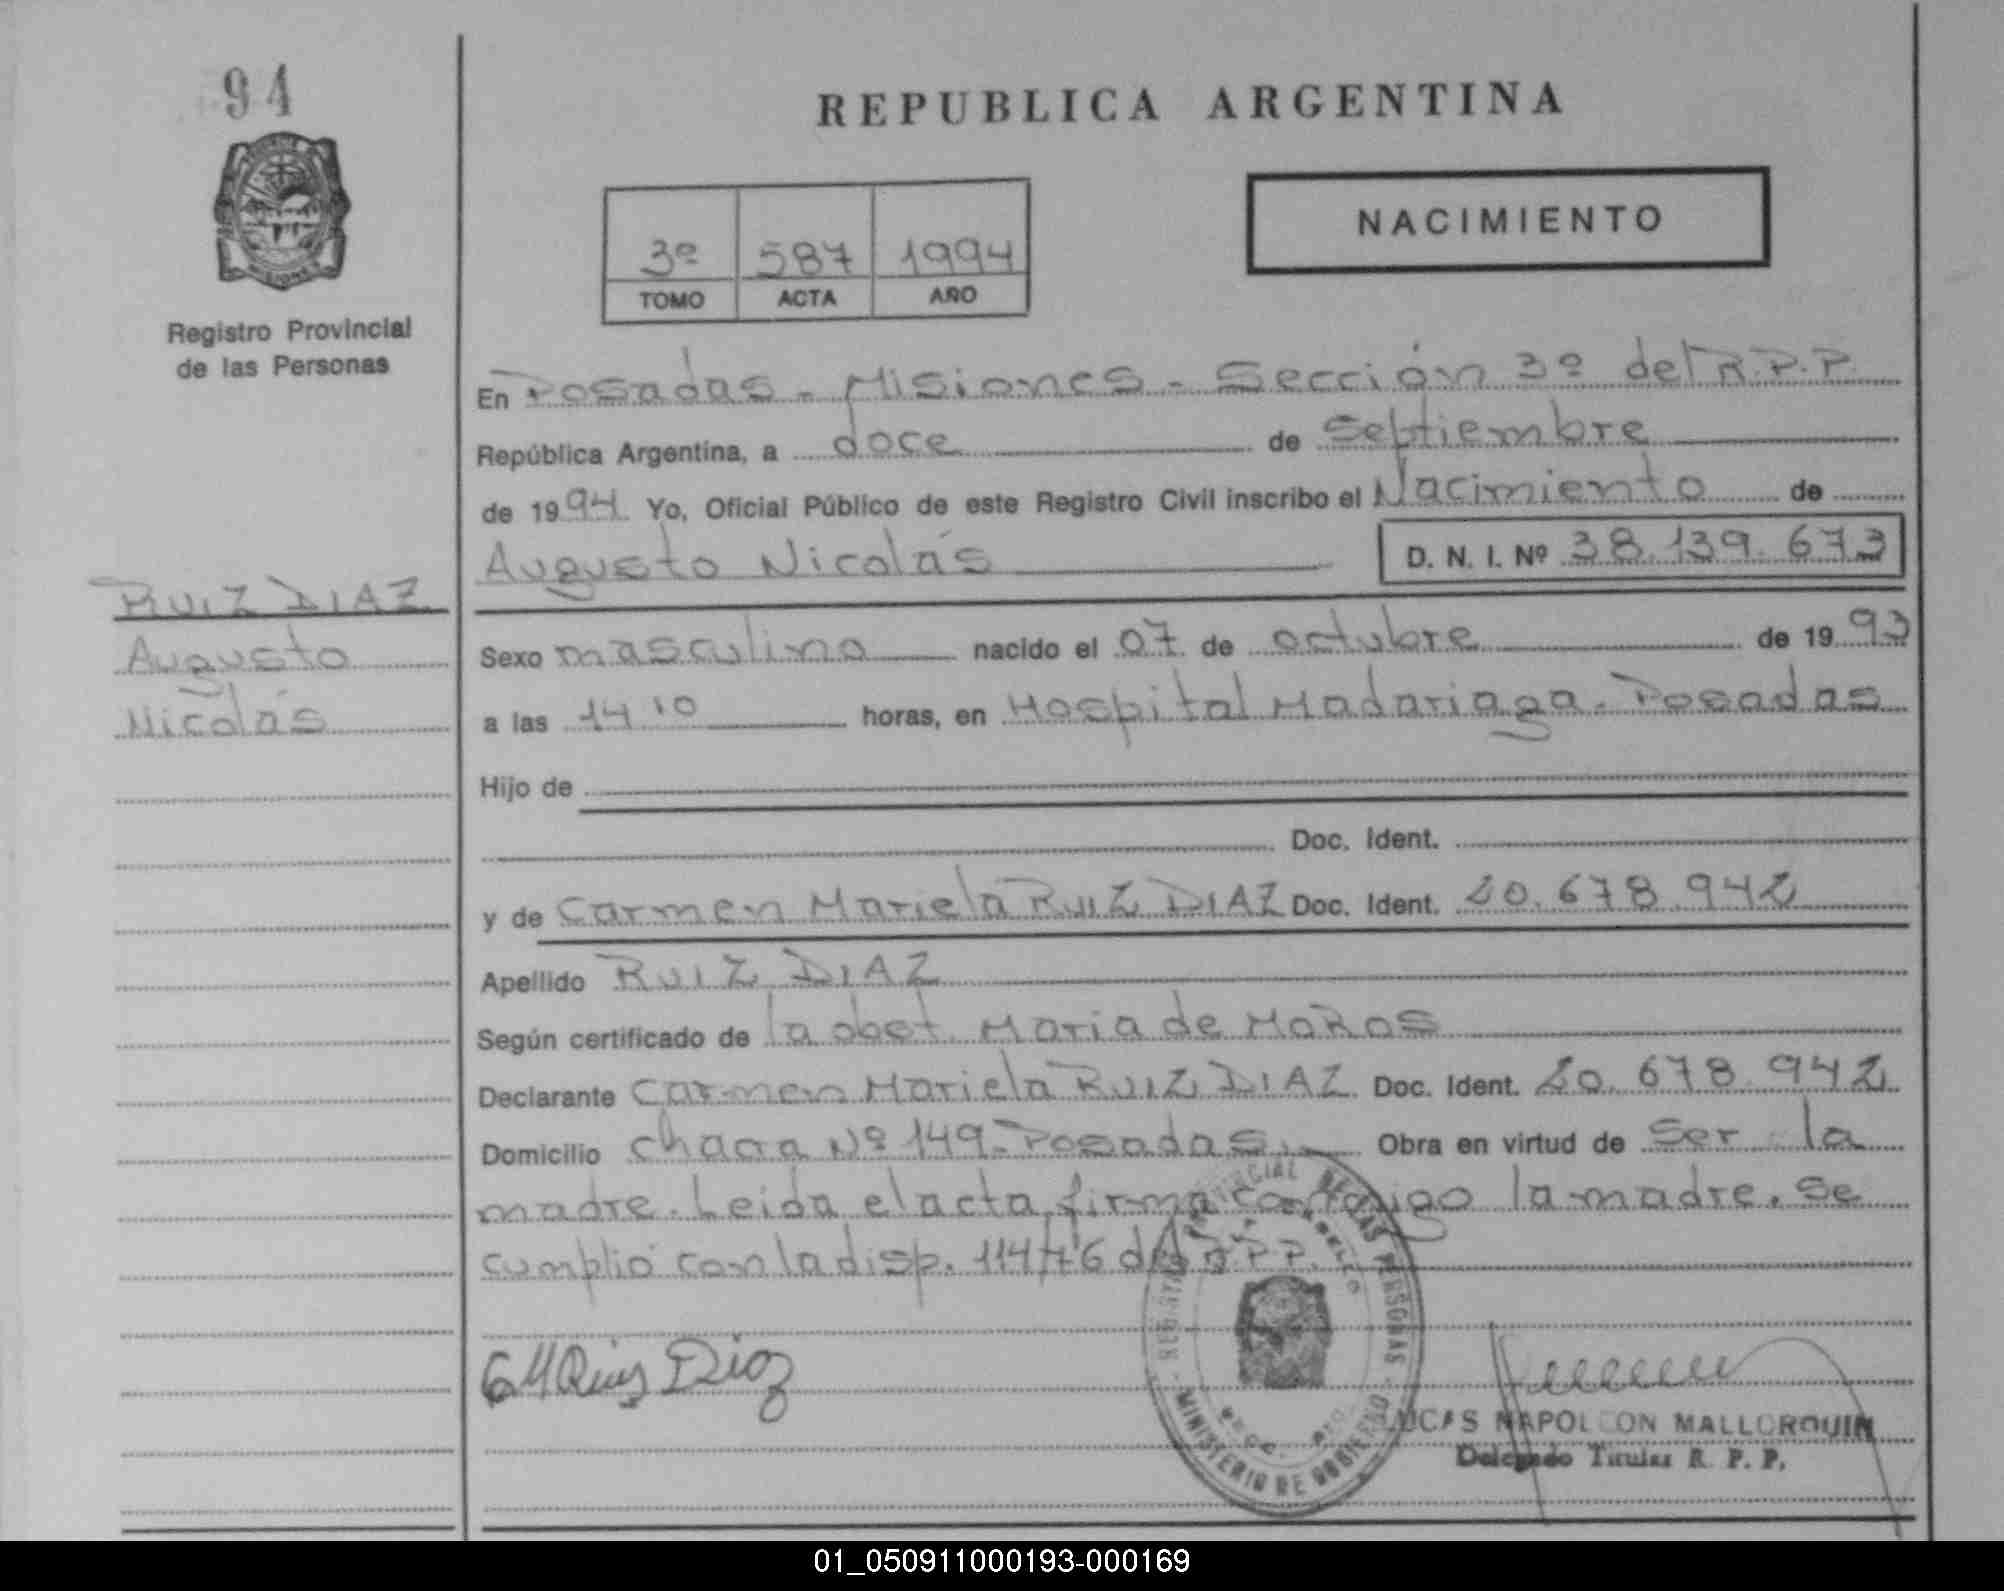 94
REPUBLICA ARGENTINA
NACIMIENTO
3º 587 1994
TOMO ACTA AÑO
Registro Provincial
de las Personas
En Posadas - Misiones - Sección 3º del R.P.P.
República Argentina, a doce de Septiembre
de 1994. Yo, Oficial Público de este Registro Civil inscribo el Nacimiento de
Augusto Nicolás D. N. I. Nº 38.139.673
RUIZ DIAZ
Augusto
Nicolás
Sexo masculino nacido el 07 de octubre de 1993
a las 14 10 horas, en Hospital Madariaga - Posadas
Hijo de
Doc. Ident.
y de Carmen Mariela RUIZ DIAZ Doc. Ident. 20.678.942
Apellido RUIZ DIAZ
Según certificado de la obst. Maria de MOROS
Declarante Carmen Mariela RUIZ DIAZ Doc. Ident. 20.678.942
Domicilio chacra Nº 149 - Posadas. Obra en virtud de ser la
madre. Leida el acta firma conmigo la madre. Se
cumplió con la disp. 114/76 del R.P.P.
CMRuiz Diaz
PROVINCIAL DE LAS PERSONAS
MINISTERIO DE GOBIERNO
LUCAS NAPOLEON MALLORQUIN
Delegado Titular R. P. P.
01_050911000193-000169